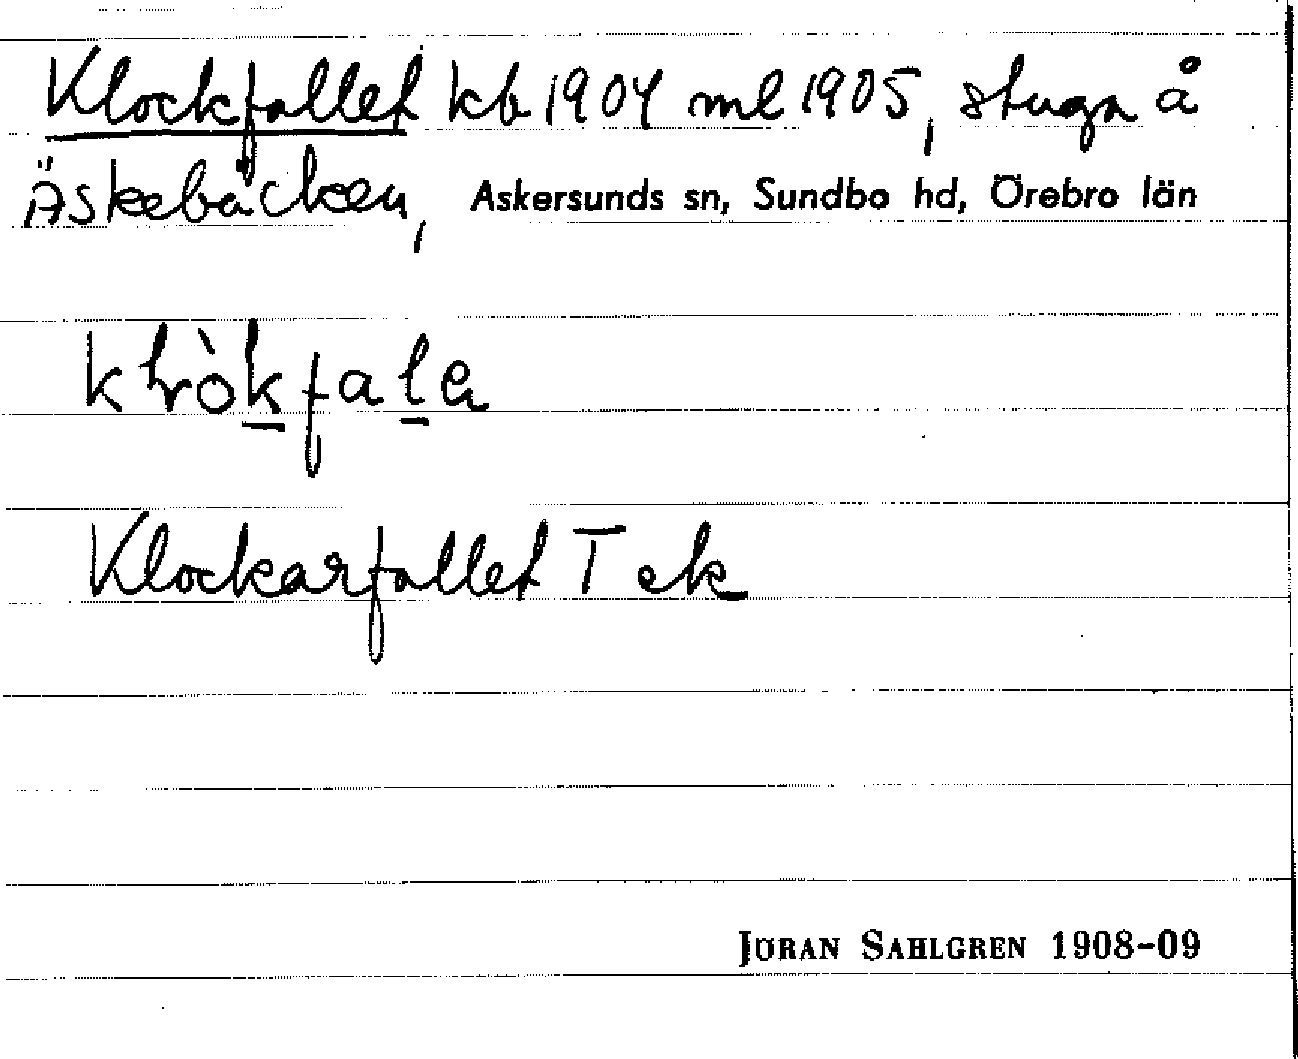 Klockfallet kb 1904 ml 1905, stuga å
Äskebäcken, Askersunds sn, Sundbo hd, Örebro län
Klockarfallet T ek
JÖRAN SAHLGREN 1908-09